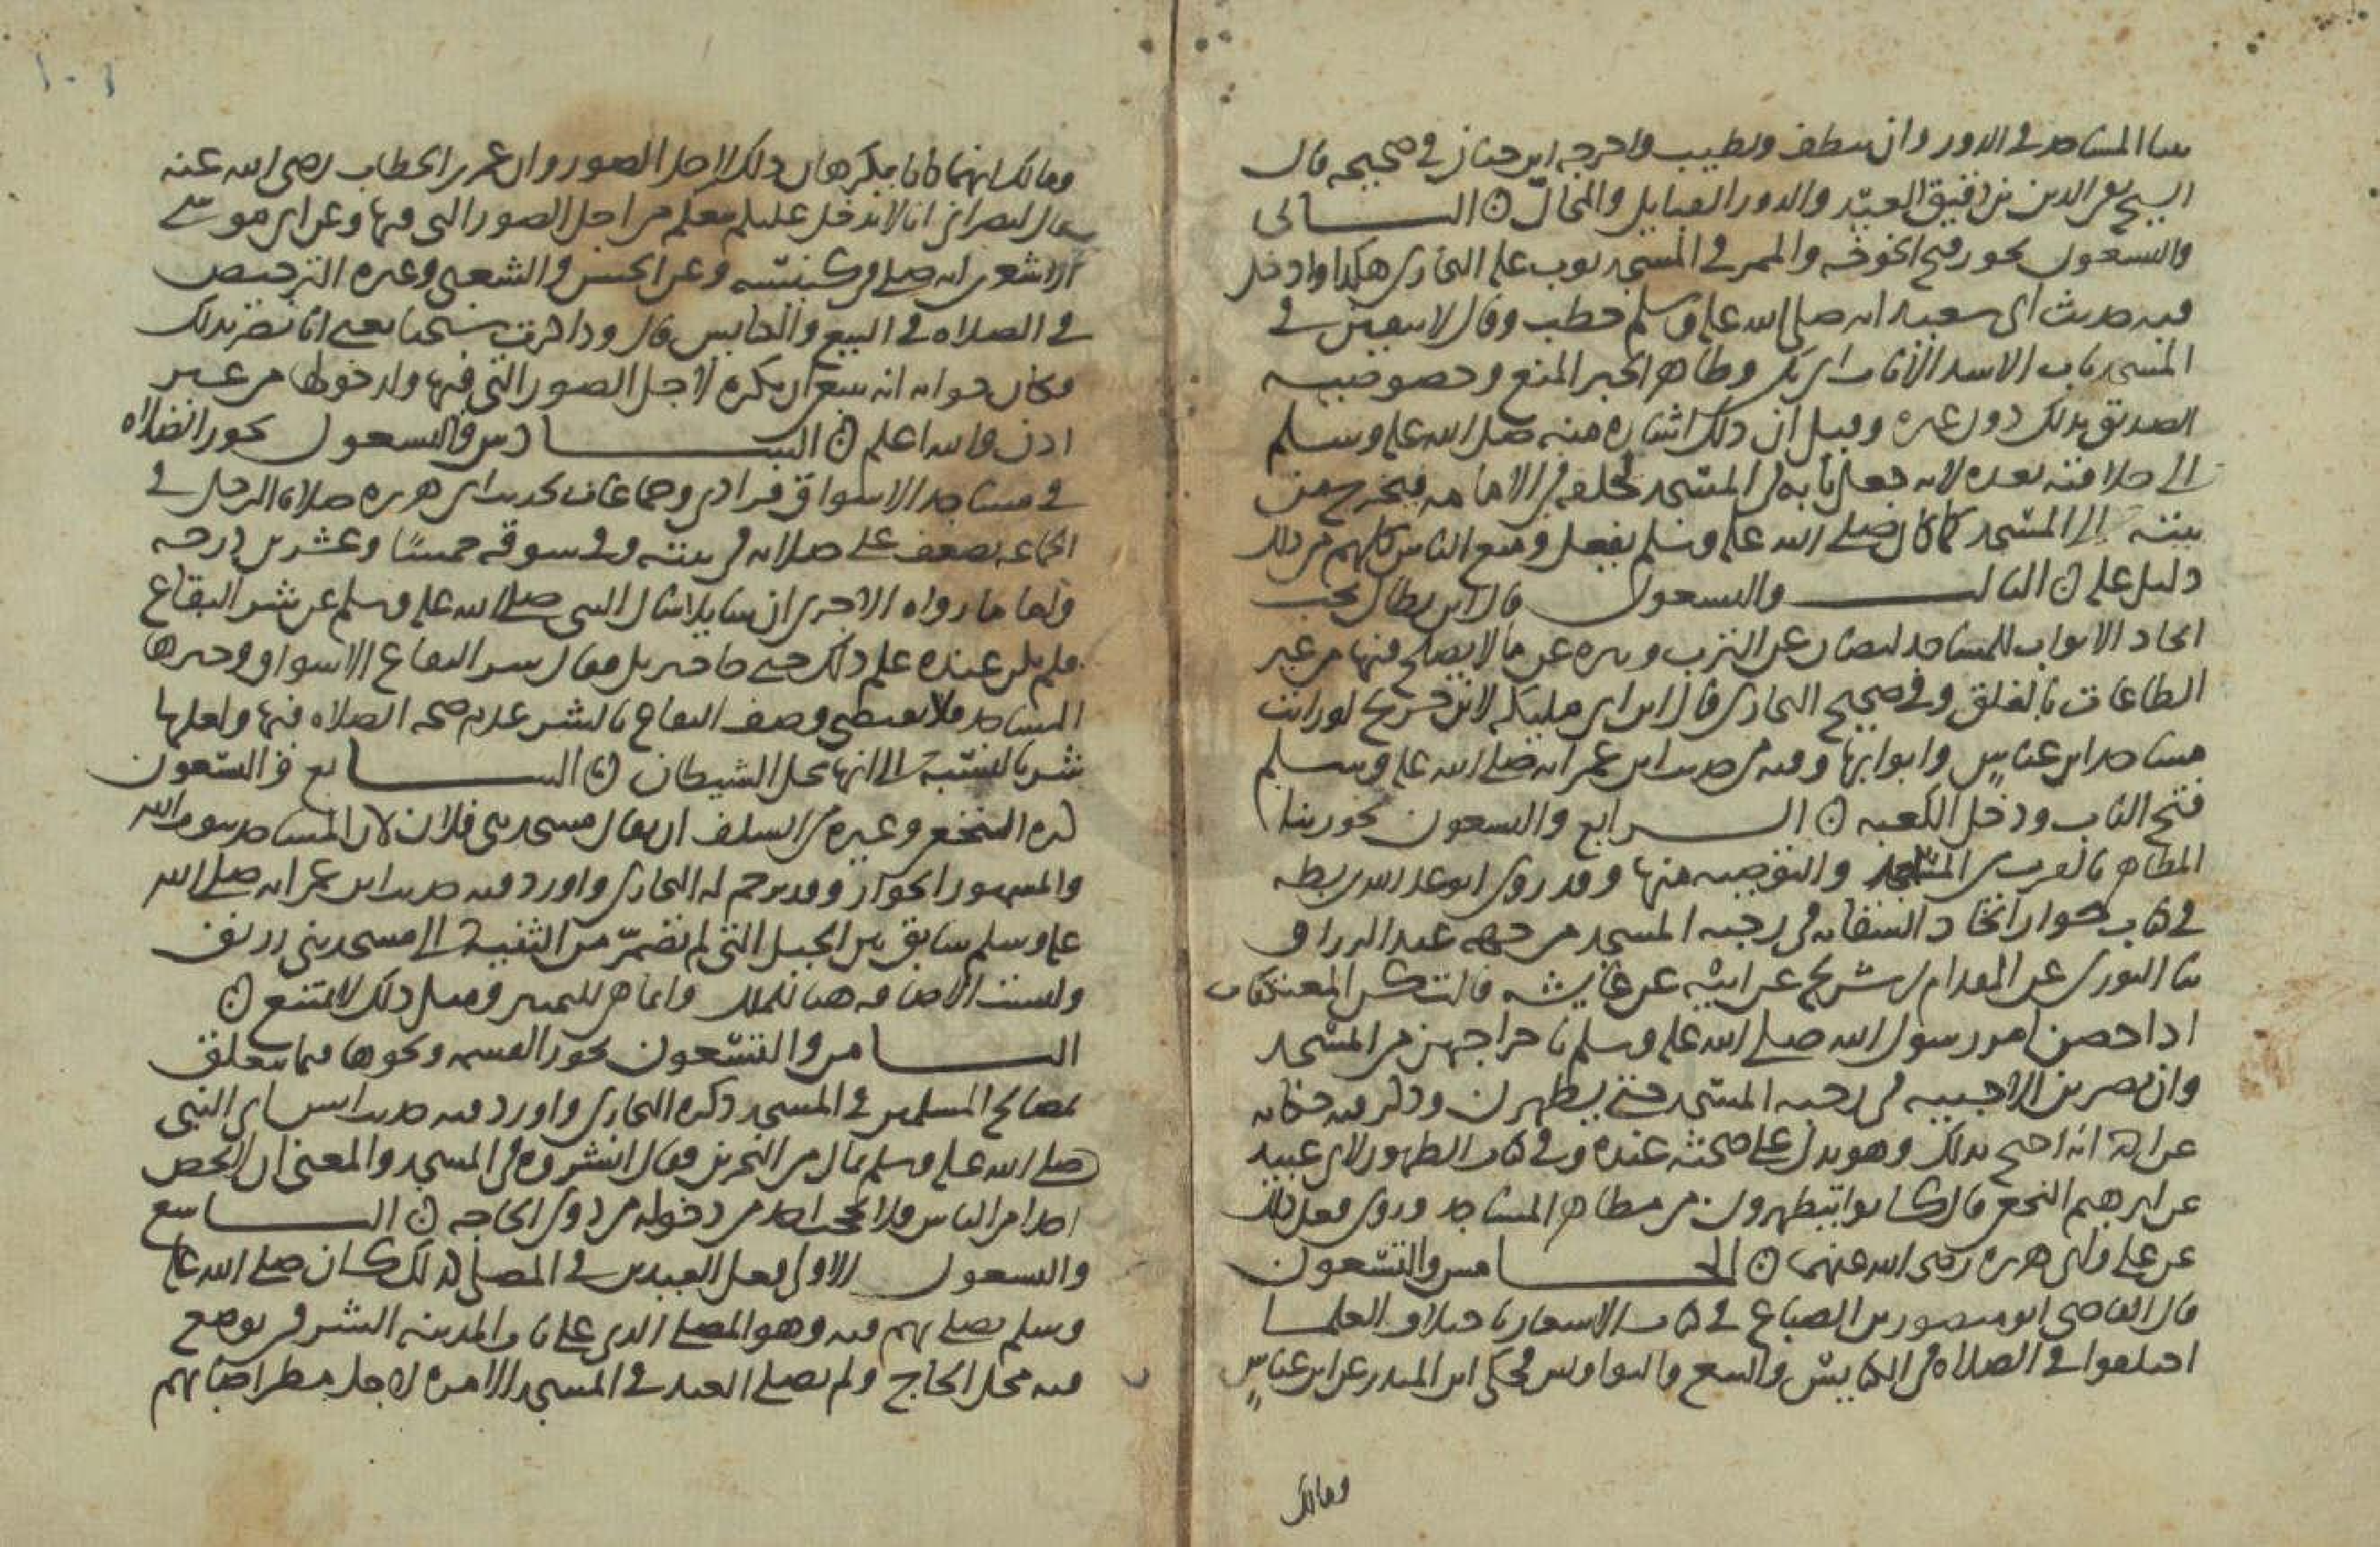 بنا المساجد في الدور وان تنظف وتطيب واخرجه ابن حبان في صحيحه قال
الشيخ تقي الدين بن دقيق العيد والدور القبايل والمحال ۞ الثاني
والتسعون يجوز فتح الخوخه والممر في المسجد بوب عليه البخاري هكذا وادخل
فيه حديث ابي سعيد انه صلى الله عليه وسلم خطب وقال لا يبقين في
المسجد باب الا سد الا باب ابي بكر وظاهر الخبر المنع وخصوصيه
الصديق بذلك دون غيره وقيل ان ذلك اشاره منه صلى الله عليه وسلم
الى خلافته بعده لانه جعل بابه في المسجد ليخلفه في الامامه فيخرج من
بيته الى المسجد كما كان صلى الله عليه وسلم يفعل ومنع الناس كلهم من ذلك
دليل على ۞ الثالث والتسعون قال ابن بطال يجب
اتخاذ الابواب للمساجد لتصان عن الترب وتنزه عن ما لا يصلح فيها من غير
الطاعات بالغلق وفي صحيح البخاري قال ابن ابي مليكه لابن جريج لو رايت
مساجد ابن عباس وابوابها وفيه من حديث ابن عمر انه صلى الله عليه وسلم
فتح الباب ودخل الكعبه ۞ الرابع والتسعون يجوز بنا
المطاهر بالقرب من المساجد والتوضي منها وقد روى ابو عبد الله بن بطه
في كتاب جواز اتخاذ السقايه في رحبه المسجد من جهه عبد الرزاق
ثنا الثوري عن المقدام بن شريح عن ابيه عن عايشه قالت كن المعتكفات
اذا حضن امر رسول الله صلى الله عليه وسلم باخراجهن من المسجد
وان يضربن الاخبيه في رحبه المسجد حتى يطهرن وذكر فيه حكايه
عن انه احتج بذلك وهو يدل على صحته عنده وفي كتاب الطهور لابي عبيد
عن ابرهيم النخعي قال كانوا يتطهرون من مطاهر المساجد وروى فعل ذلك
عن علي وابي هريره رضي الله عنهما ۞ الخامس والتسعون
قال القاضي ابو منصور بن الصباغ في كتاب الاشعار باختلاف العلما
اختلفوا في الصلاه في الكنايس والبيع والنواويس فحكى ابن المنذر عن ابن عباس
ومالك
ومالك انهما كانا يكرهان ذلك لاجل الصور وان عمر بن الخطاب رضي الله عنه
قال لنصراني انا لا ندخل عليكم بيعكم من اجل الصور التي فيها وعن ابي موسى
الاشعري انه صلى في كنيسه وعن الحسن والشعبي وغيره الترخيص
في الصلاه في البيع والكنايس قال وذاكرت شيخنا يعني ابا نصر بذلك
فكان جوابه انه ينبغي ان يكره لاجل الصور التي فيها ولدخولها من غير
اذن والله اعلم ۞ السادس والتسعون يجوز الصلاه
في مساجد الاسواق فرادى وجماعات لحديث ابي هريره صلاه الرجل في
الجماعه تضعف على صلاته في بيته وفي سوقه خمسا وعشرين درجه
واما ما رواه الاجري ان سايلا سال النبي صلى الله عليه وسلم عن شر البقاع
فلم يكن عنده علم ذلك حتى جا جبريل فقال شر البقاع الاسواق وخيرها
المساجد فلا يقتضي وصف البقاع بالشر عدم صحه الصلاه فيها ولعلها
شر بالنسبة الى انها محل الشيطان ۞ السابع والتسعون
كره النخعي وغيره من السلف ان يقال مسجد بني فلان لان المساجد بيوت الله
والمشهور الجواز وقد ترجم له البخاري واورد فيه حديث ابن عمر انه صلى الله
عليه وسلم سابق بين الخيل التي لم تضمر من الثنية الى مسجد بني زريق
وليست الاضافه هنا للملك وانما هي للتمييز ومثل ذلك لا يمتنع ۞
الثامن والتسعون يجوز القسمه ونحوها مما يتعلق
بمصالح المسلمين في المسجد ذكره البخاري واورد فيه حديث انس اتي النبي
صلى الله عليه وسلم بمال من البحرين فقال انثروه في المسجد والمعنى ان لا يخص
احدا من الناس ولا يحجب احد من دخوله من ذوي الحاجه ۞ التاسع
والتسعون الاولى فعل العيدين في المصلى كذلك كان صلى الله عليه
وسلم يصلي بهم فيه وهو المصلى الذي على باب المدينه الشرقي يوضع
فيه محل الحاج ولم يصلي العيد في المسجد الا مره لاجل مطر اصابهم